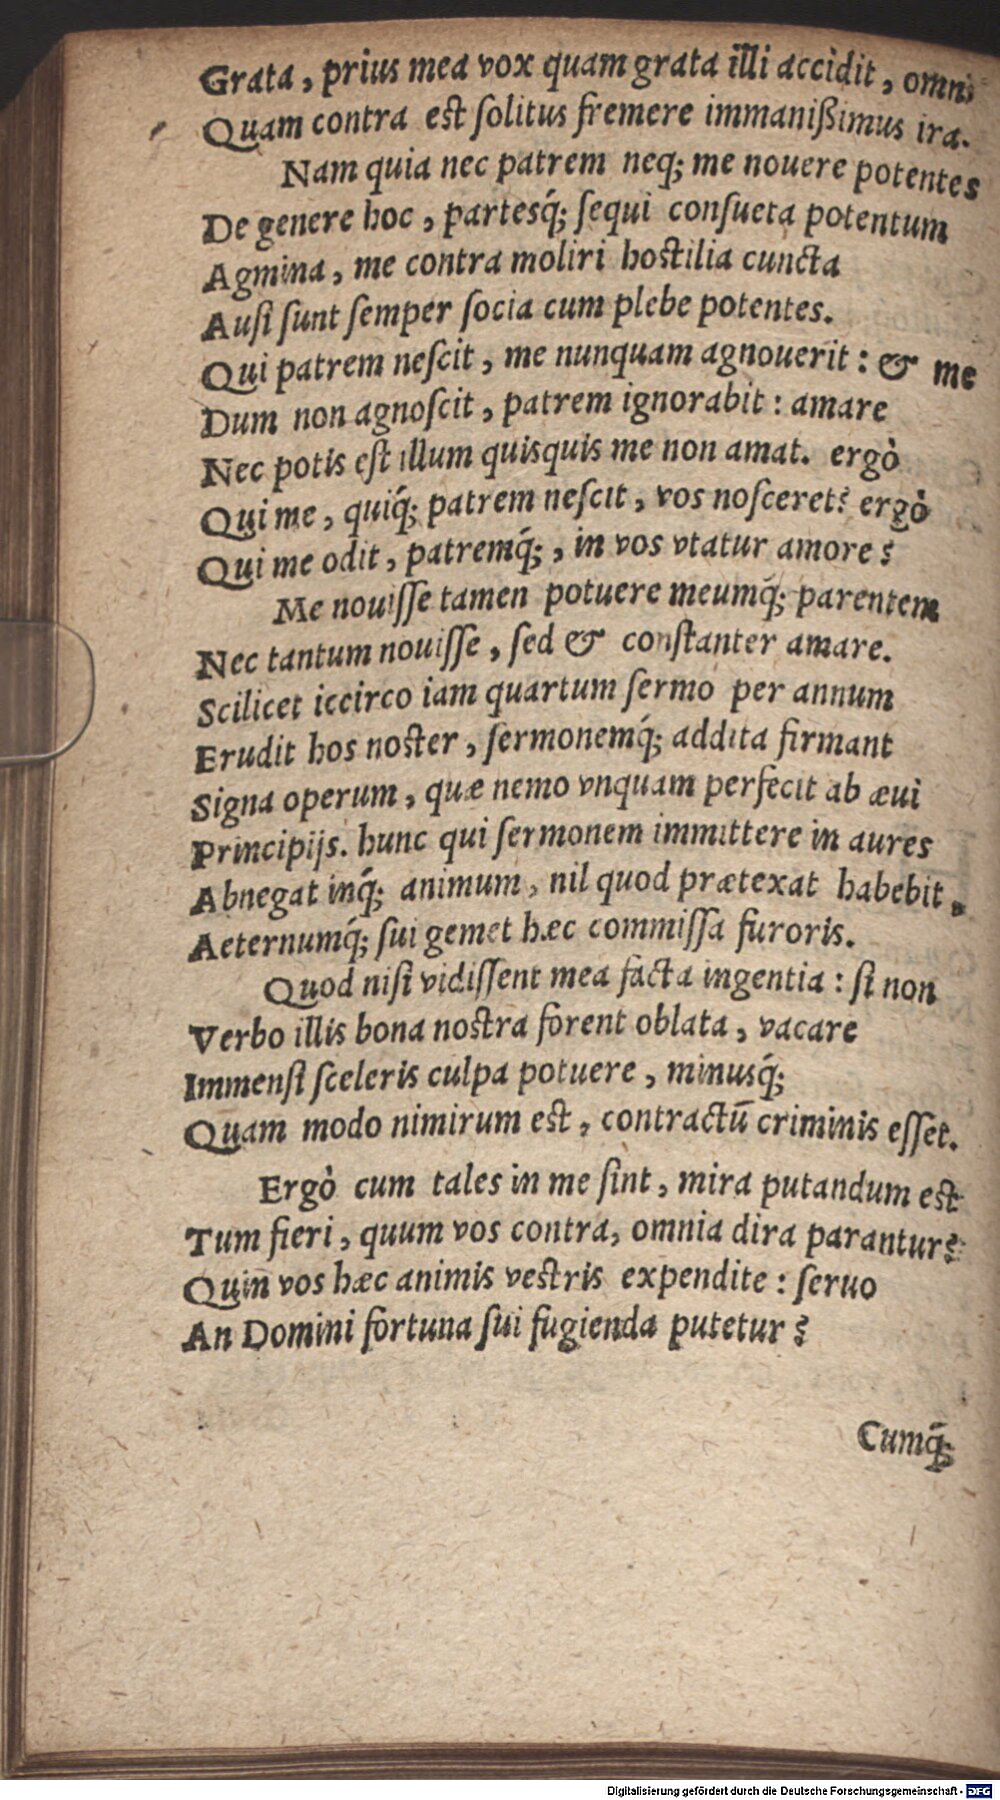 Grata, prius mea vox quam grata illi accìdit, omni
Quam contra est ſolitus fremere immanißimus ira.
Nam quia nec patrem neq; me nouere potentes
De genere hoc, partesq́; ſequi conſueta potentum
Agmina, me contra moliri hostilia cuncta
Auſi ſunt ſemper ſocia cum plebe potentes.
Qui patrem neſcit, me nunquam agnouerit: & me
Dum non agnoſcit, patrem ignorabit: amare
Nec potis eſt illum quisquis me non amat. ergò
Qui me, quiq́; patrem neſcit, vos noſceret? ergò
Qui me odit, patremq́;, in vos vtatur amore?
Me nouiſſe tamen potuere meumq́; parentem
Nec tantum nouiſſe, ſed & conſtanter amare.
Scilicet iccirco iam quartum ſermo per annum
Erudit hos noster, ſermonemq́; addita firmant
Signa operum, quæ nemo vnquam perfecit ab æui
Principijs. hunc qui ſermonem immittere in aures
Abnegat inq́; animum, nil quod prætexat habebit,
Aeternumq́; ſui gemet hæc commiſſa furoris.
Quod niſi vidiſſent mea facta ingentia: ſi non
Verbo illis bona nostra forent oblata, vacare
Immenſi ſceleris culpa potuere, minusq́;
Quam modo nimirum est, contractū criminis eſſet.
Ergò cum tales in me ſint, mira putandum est
Tum fieri, quum vos contra, omnia dira parantur?
Quin vos hæc animis vestris expendite: ſeruo
An Domini fortuna ſui fugienda putetur?
Cumq́;
Digitalisierung gefördert durch die Deutsche Forschungsgemeinschaft - DFG